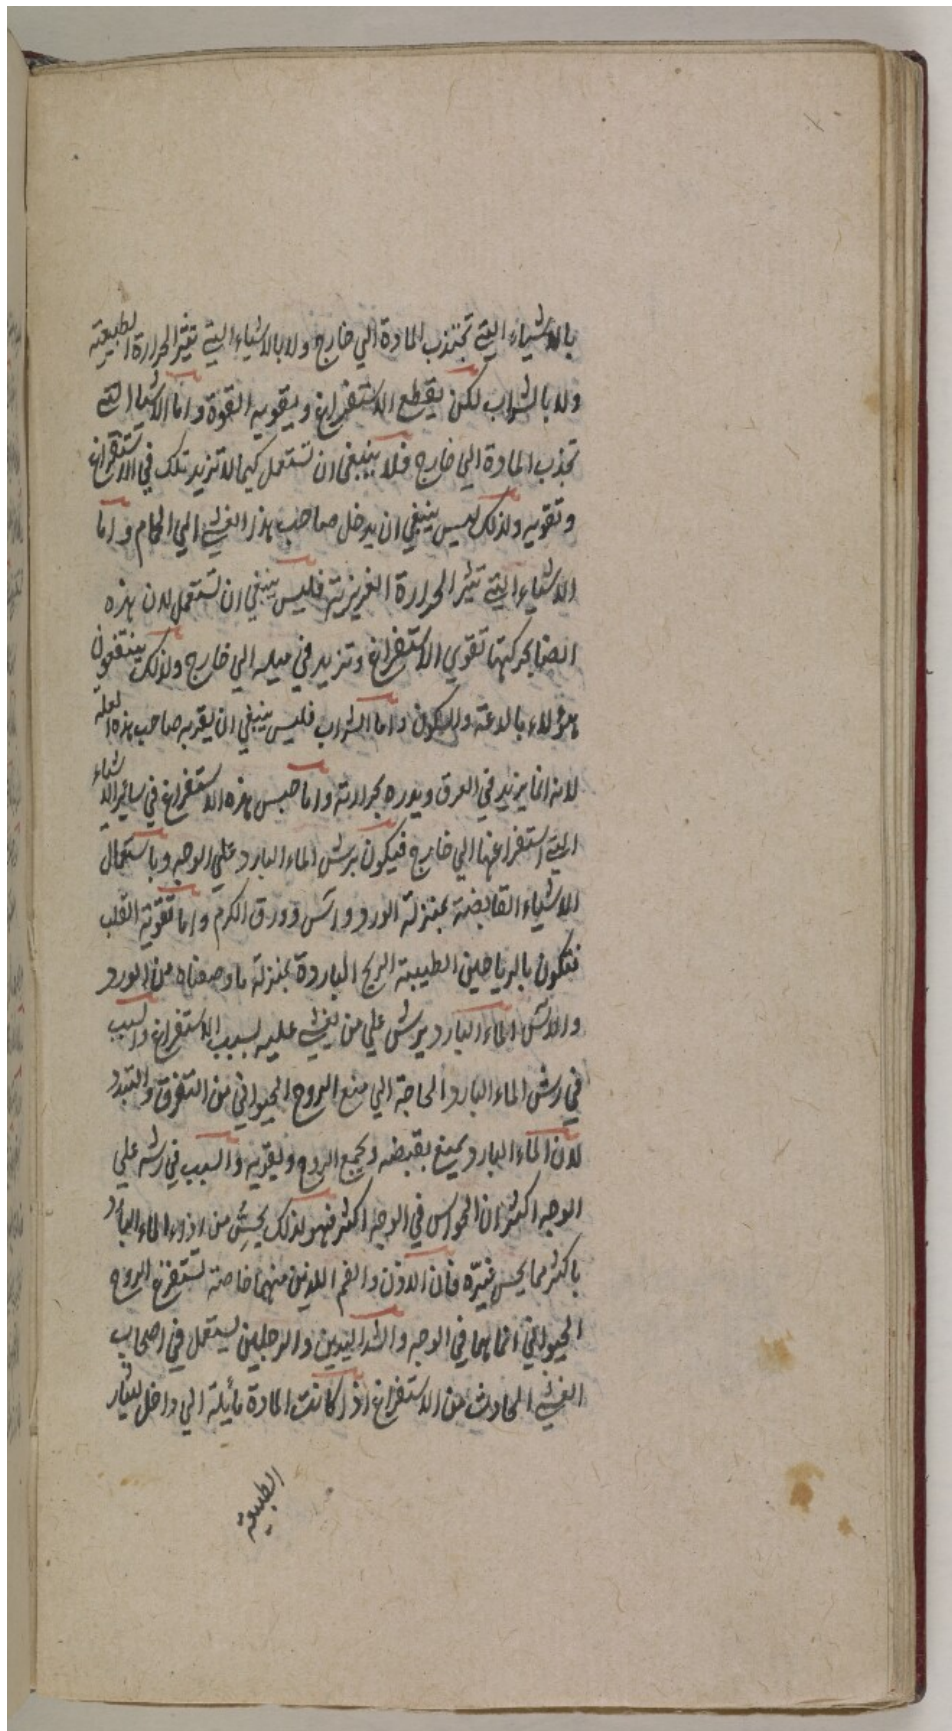 بالاشياء التي تجتذب المادة الي خارج ولا بالاشياء التي تثير الحرارة الطبيعية
ولا بالشراب لكن يقطع الاستفراغ وبقويه القوة واما الاشياء التي
تجذب المادة الي خارج فلا ينبغي ان تستعمل كيما لا تزيد تلك في الاستفراغ
وتقويه ولذلك ليس ينبغي ان يدخل صاحب هذا الغشي الي الحمام واما
الاشياء التي تثير الحرارة الغريزية فليس ينبغي ان تستعمل لان هذه
ايضا بحركتها تقوي الاستفراغ وتزيد في ميله الي خارج ولذلك ينتفعون
هؤلاء بالدعة والسكون واما الشراب فليس ينبغي ان يقربه صاحب هذه العلة
لانه انما يزيد في العرق ويدره بحرارته واما حبس هذه الاستفراغ في سائر الاشياء
التي استفراغها الي خارج فيكون برش الماء البارد علي الوجه وباستعمال
الاشياء القابضة بمنزلة الورد واس وورق الكرم واما تقوية القلب
فتكون بالرياحين الطيبة الريح الباردة بمنزلة ما وصفناه من الورد
والاس الماء البارد يرش علي من يغشي عليه بسبب الاستفراغ والسبب
في رش الماء البارد الحاجة الي منع الروح الحيواني من التفرق والتبدد
لان الماء البارد يمنع بقبضه ويجمع الروح ويقويه والسبب في رشه علي
الوجه اكثر ان الحواس في الوجه اكثر فهو لذلك يحس من اذى الماء البارد
باكثر مما يحس غيره فان الاذن والفم اللذين منهما خاصة تستفرغ الروح
الحيواني انما هما في الوجه والشد اليدين والرجلين يستعمل في اصحاب
الغشي الحادث من الاستفراغ اذا كانت المادة مائلة الي داخل ليثار
الطبيعة